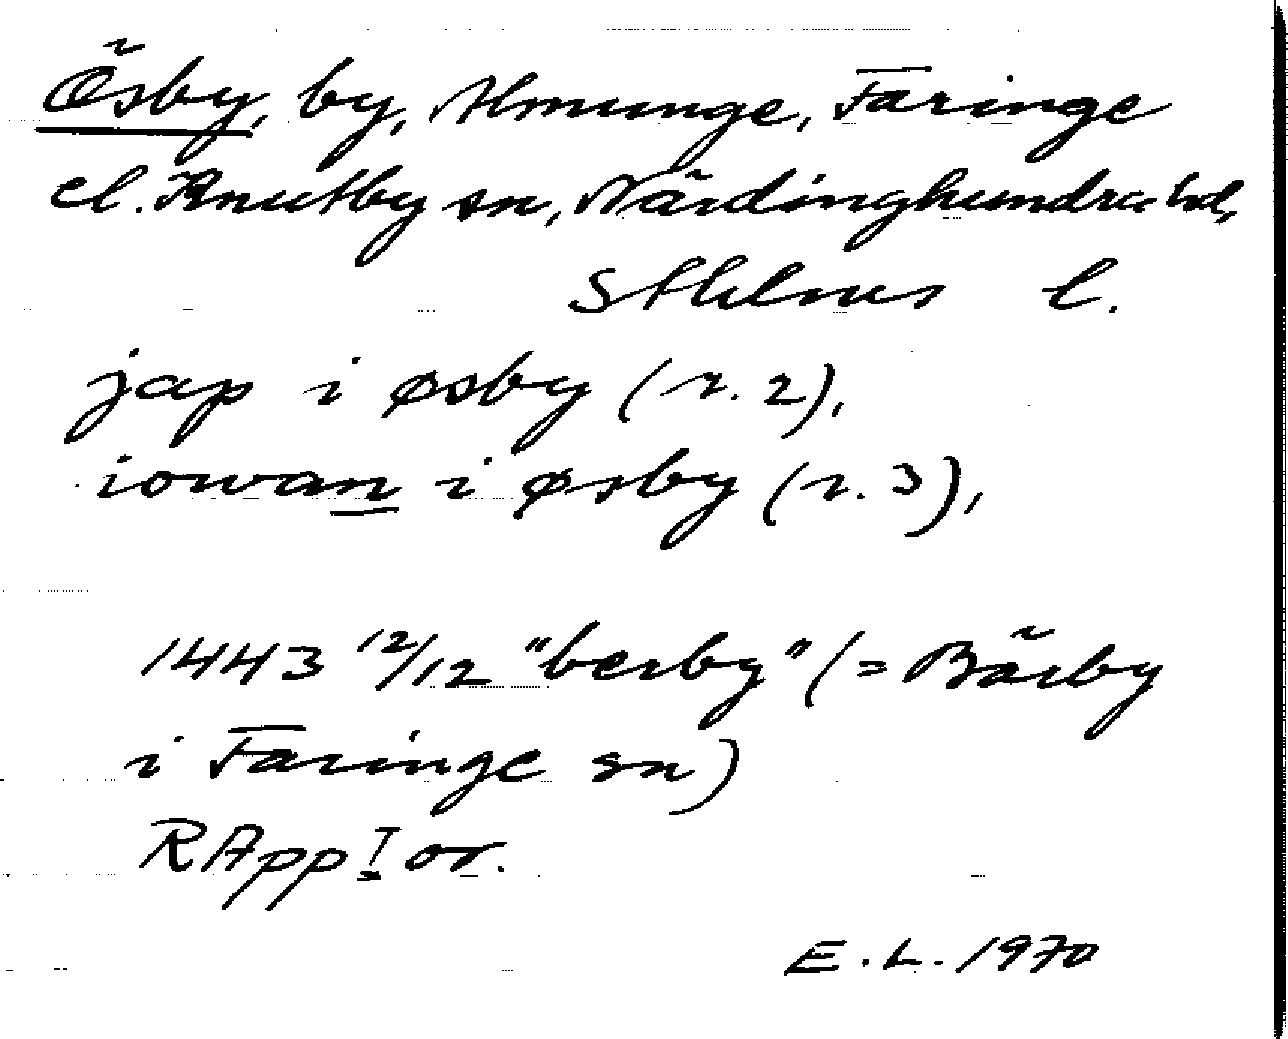 Ösby, by, Almunge, Faringe
el. Knutby sn, Närdinghundra hd,
Sthlms l.
jap i øsby (r. 2),
iowan i øsby (r. 3),
1443 12/12 "berby" (= Bärby
i Faringe sn)
RApp I or.
E. L. 1970